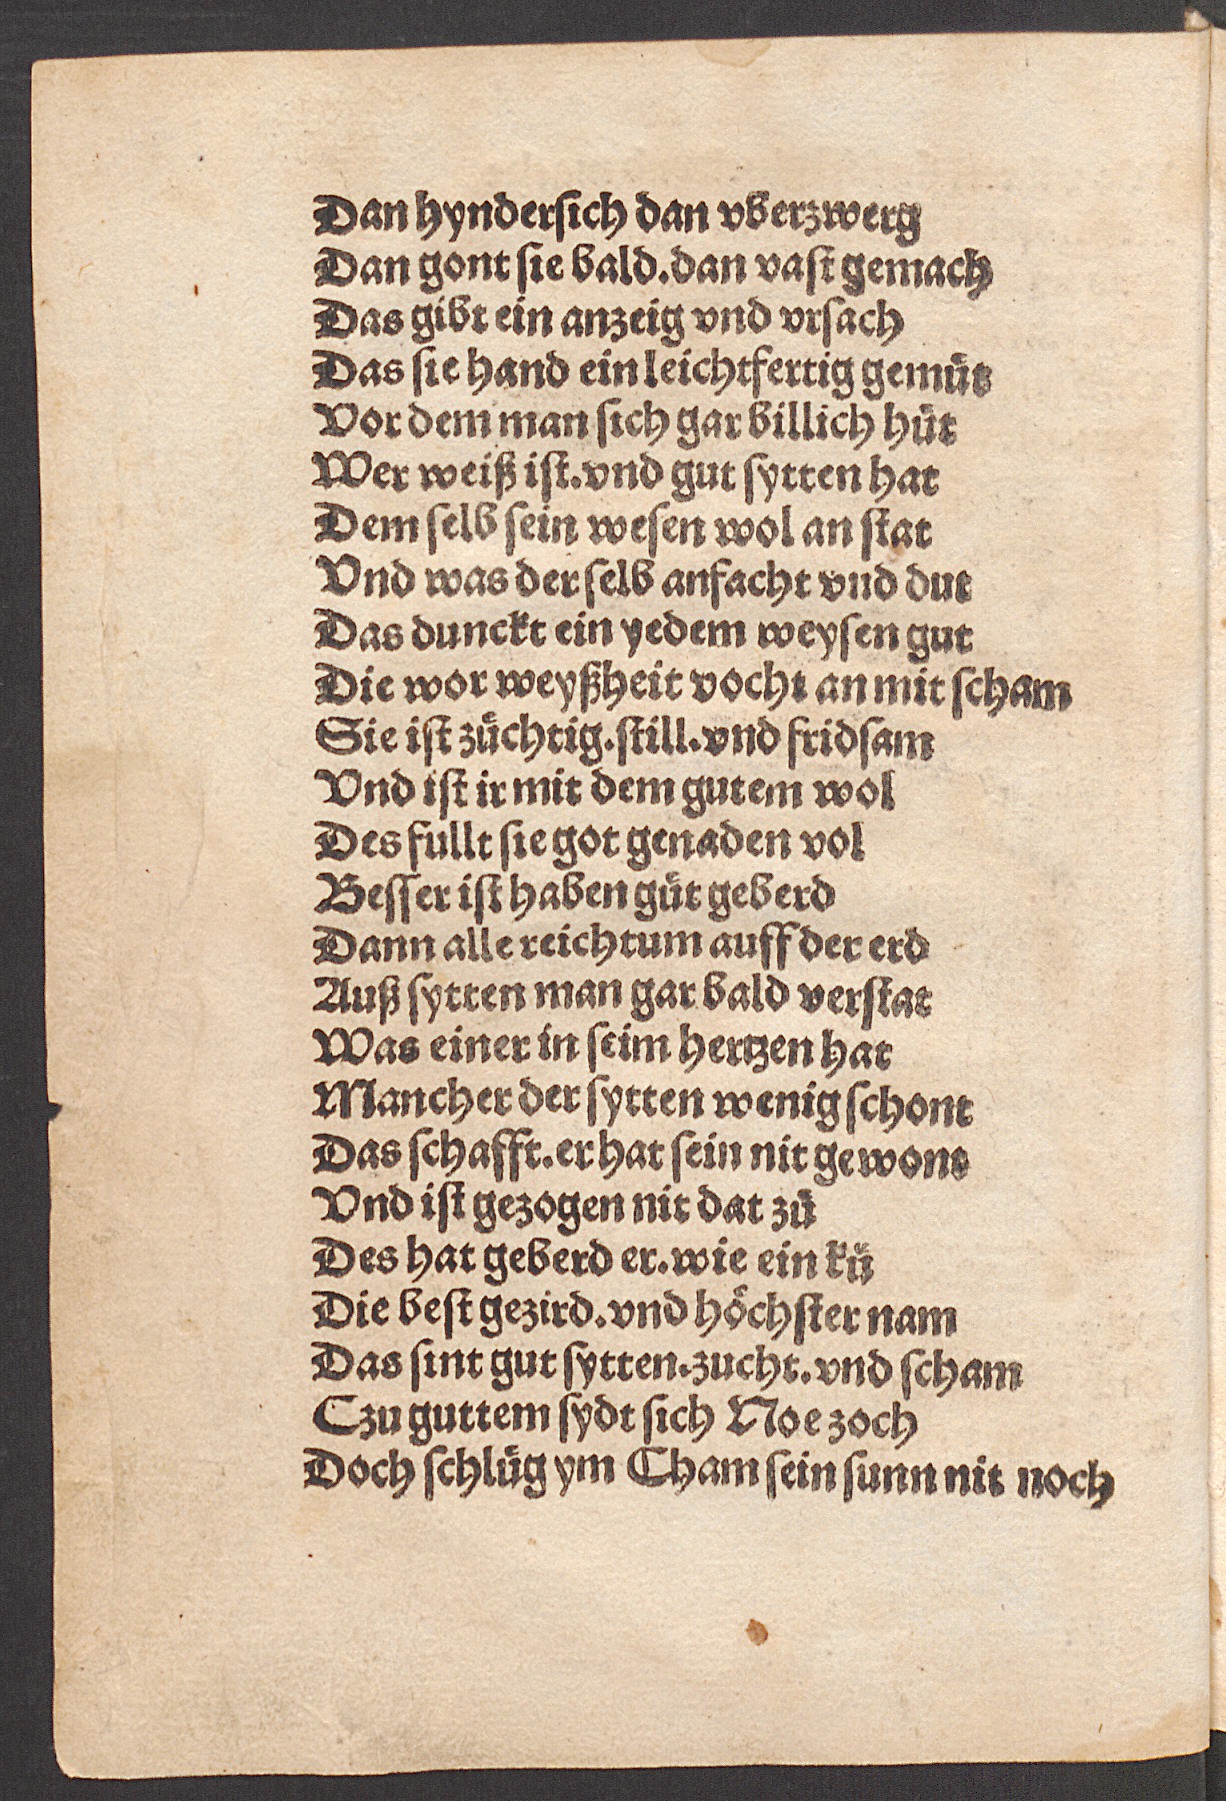 Dan hyndersich dan vberzwerg
Dan gont sie bald.dan vast gemach
Das gibt ein anzeig vnd vrsach
Das sie hand ein leichtfertig gemüt
Vor dem man sich gar billich hüt
Wer weiß ist.vnd gut sytten hat
Dem selb sein wesen wol an stat
Vnd was der selb anfacht vnd dut
Das dunckt ein yedem weysen gut
Die wor weyßheit vocht an mit scham
Sie ist züchtig.still.vnd fridsam
Vnd ist ir mit dem gutem wol
Des fullt sie got genaden vol
Besser ist haben güt geberd
Dann alle reichtum auff der erd
Auß sytten man gar bald verstat
Was einer in seim hertzen hat
Mancher der sytten wenig schont
Das schafft.er hat sein nit gewont
Vnd ist gezogen nit dat zü
Des hat geberd er.wie ein kü
Die best gezird.vnd höchster nam
Das sint gut sytten.zucht.vnd scham
Czu guttem sydt sich Noe zoch
Doch schlüg ym Cham sein sunn nit noch